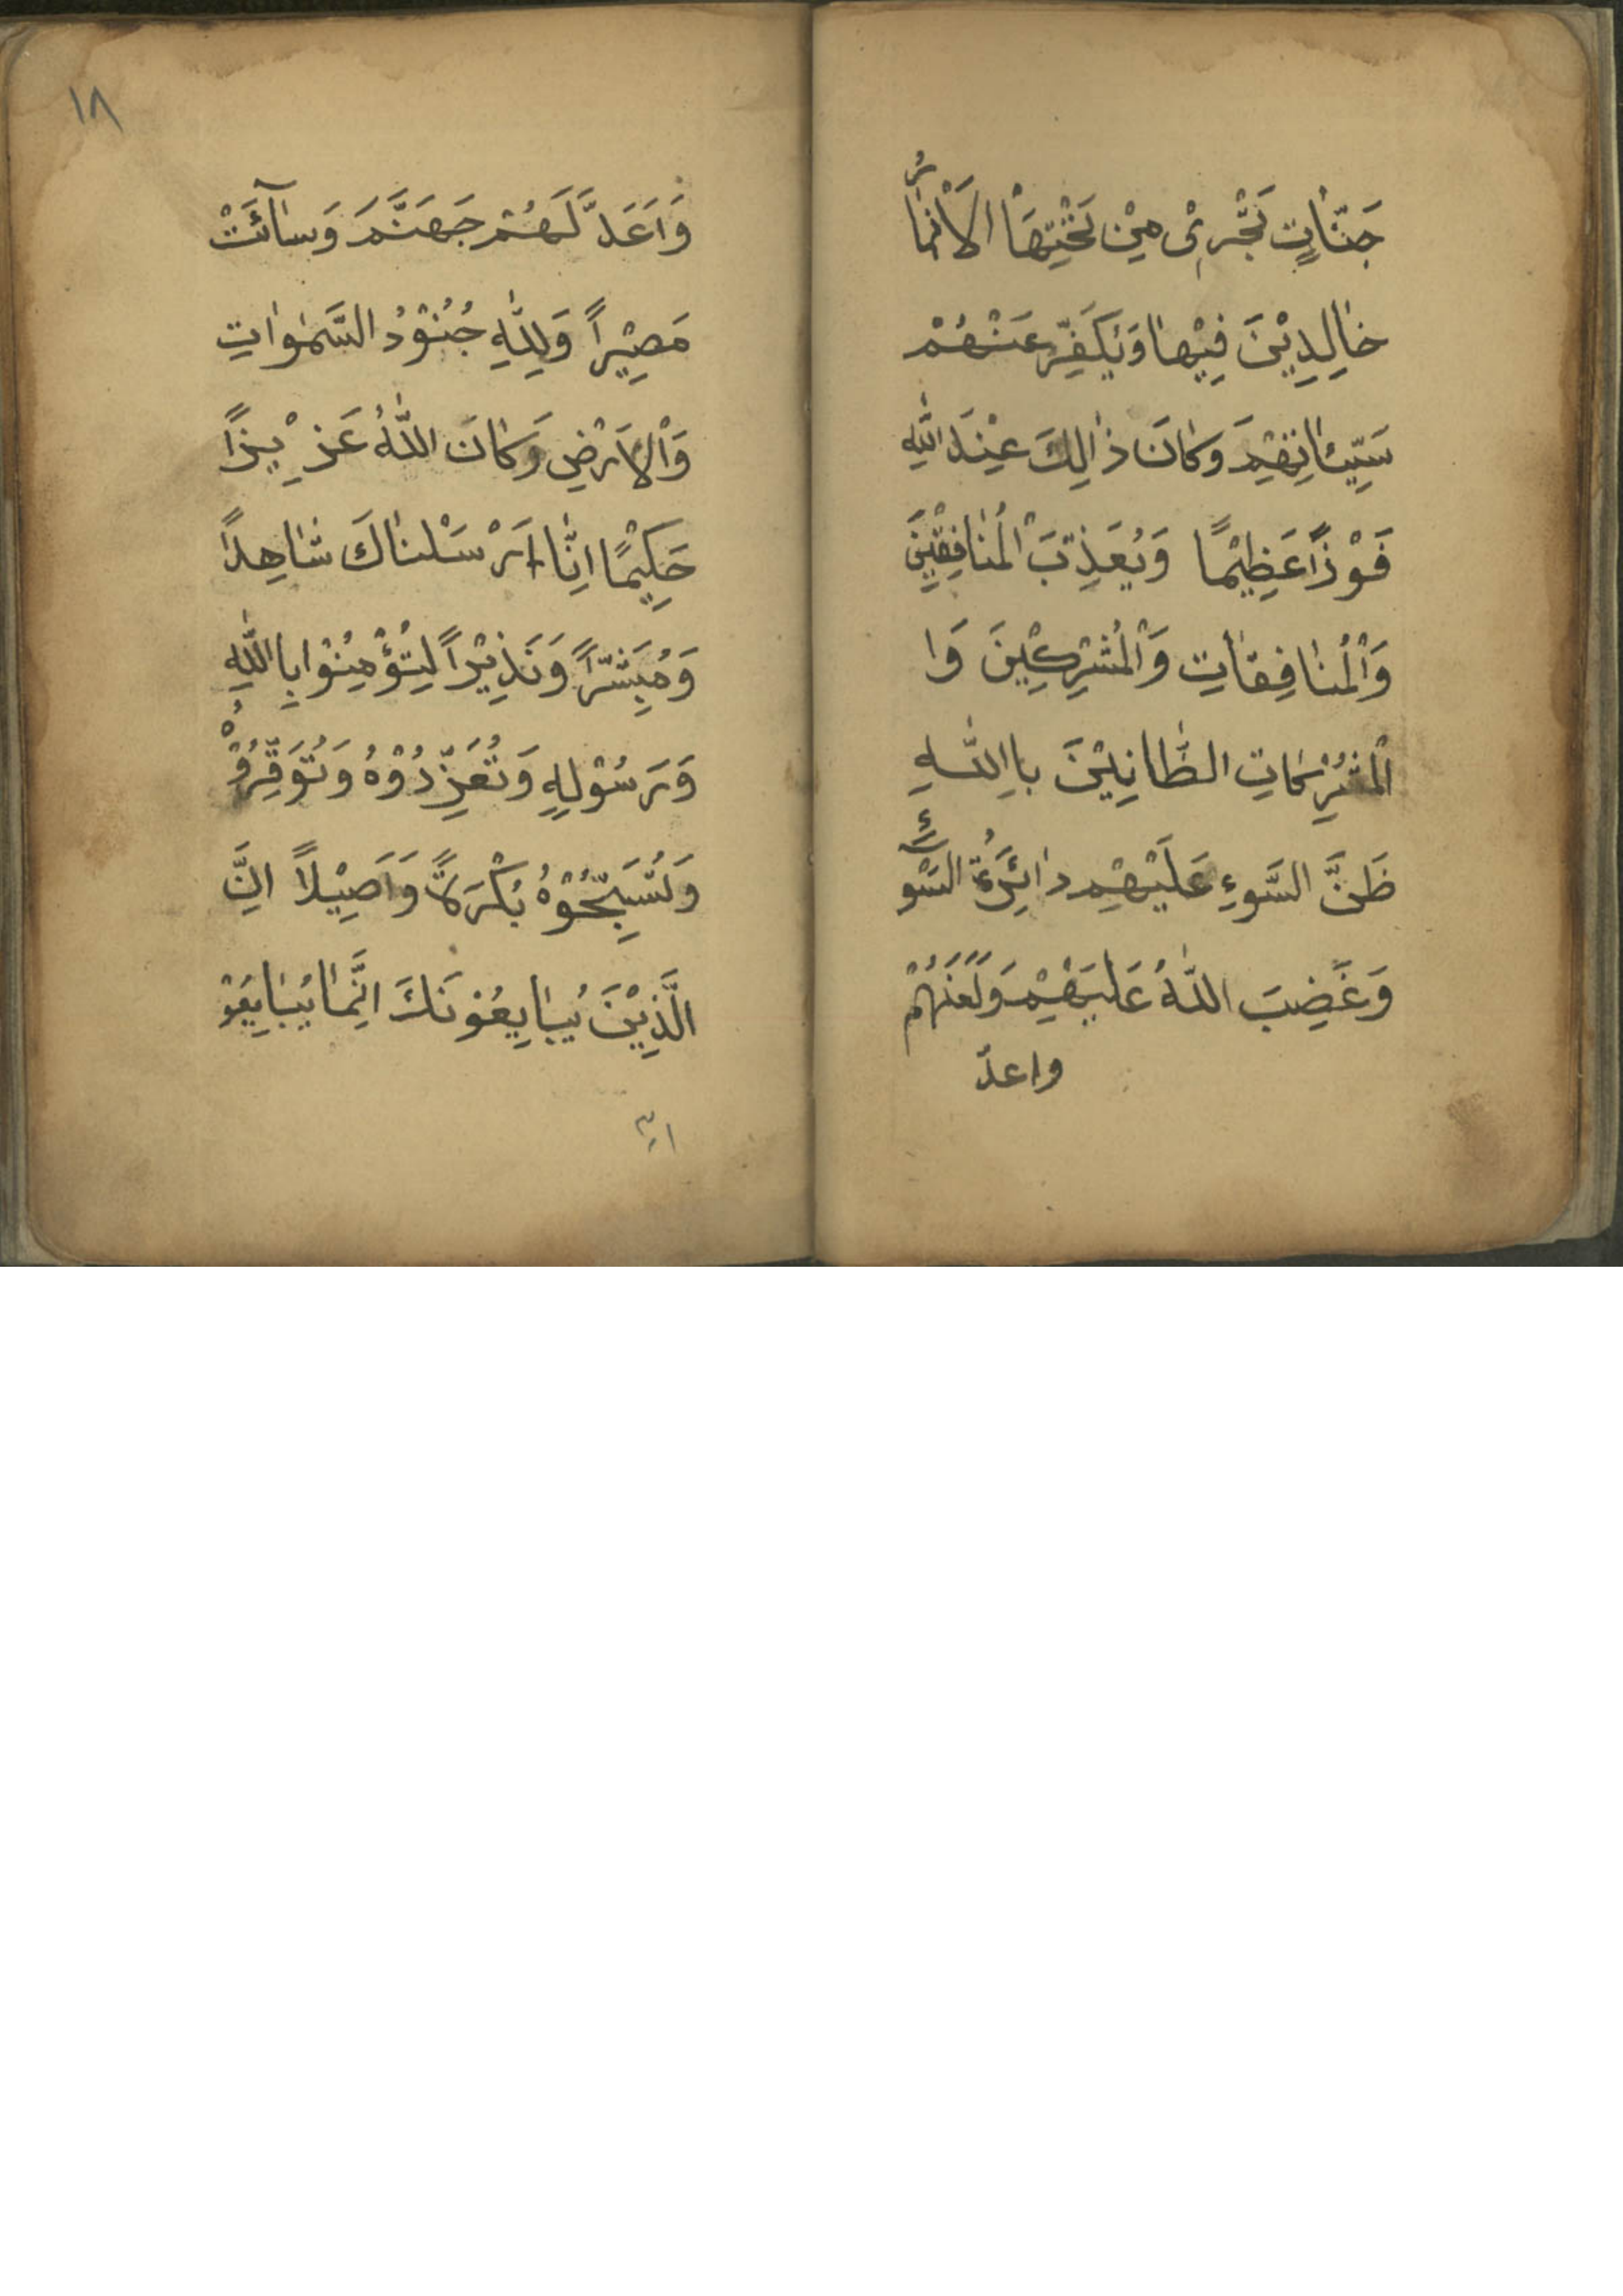 جَنّٰاتٍ تَجْرِىْ مِيْنْ تَحْتِهَاْ الْاَنْهَارُ
خٰالِدِيْنَ فِيْهٰا وَيُكَفِّرْ عَنْهُمْ
سَيِّئٰاتِهِمْ وَكٰانَ ذٰالِكَ عِيْنْدَ اللّٰهِ
فَوْزًا عَظِيْمًا وَيُعَذِّبَ الْمُنٰافِقِيْنَ
وَالْمُنٰافِقٰاتِ وَالْمُشْرِكِيْنَ وَا
لْمُشْرِكٰاتِ الظّٰانِيْنَ بِااللّٰهِ
ظَنَّ السَّوءِ عَلَيْهِمْ دٰائِرَةُ السَّوْءِ
وَغَضِبَ اللّٰهُ عَلَيْهِمْ وَلَعَنَهُمْ
واعدّ
١٨
وَاَعَدَّ لَهُمْ جَهَنَّمَ وَسٰآئَتْ
مَصِيْرًا وَلِلّٰهِ جُنُوْدُ السَّمٰوٰاتِ
وَالْاَرْضِ وَكٰانَ اللّٰهُ عَزِيْزًا
حَكِيْمًا اِنّٰا اَرْسَلْنٰاكَ شٰاهِدًا
وَمُبَشِّرًا وَنَذِيْرًا لِتُؤْمِنُوْا بِااللّٰهِ
وَرَسُوْلِهِ وَتُعَزِّرُوْهُ وَتُوَقِّرُوْهُ
وَتُسَبِّحُوْهُ بُكْرَةً وَاَصِيْلًا اِنَّ
الَّذِيْنَ يُبٰايِعُوْنَكَ اِنَّمٰا يُبٰايِعُوْ